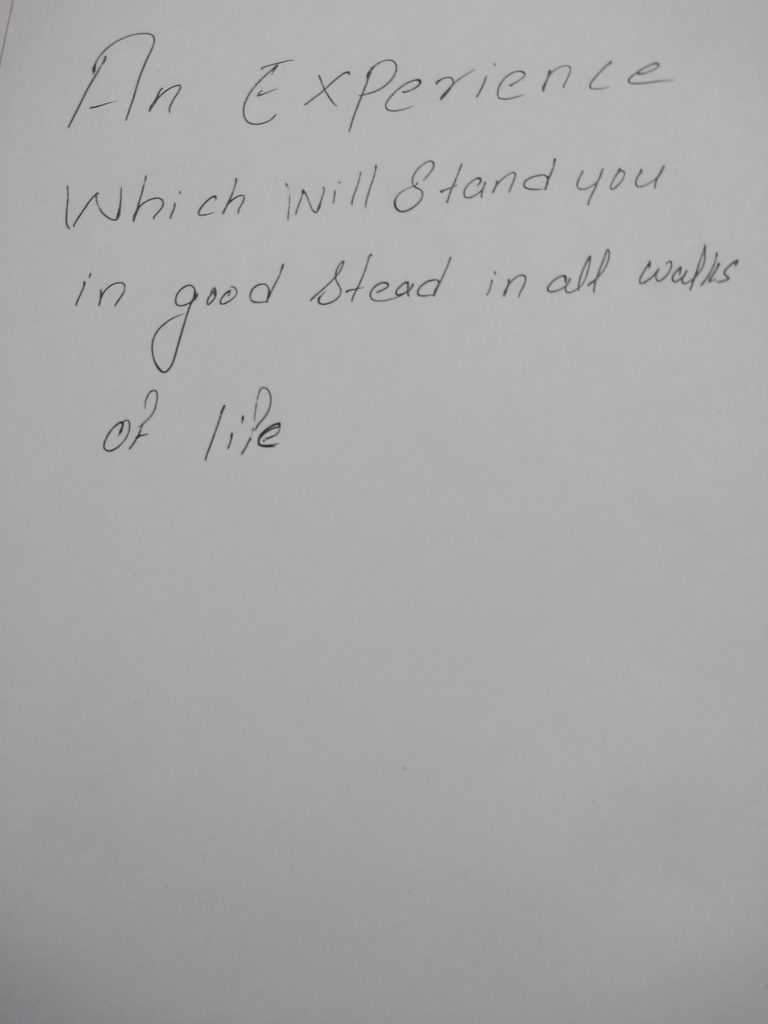 An Experience
Which Will Stand you
in good stead in all walks
of life